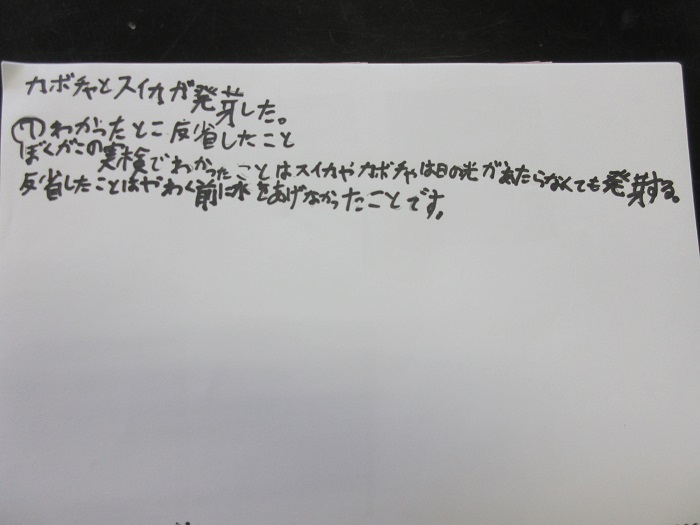 カボチャとスイカが発芽した。
⑦わかったとこ反省したこと
ぼくがこの実検でわかったことはスイカやカボチャは日の光があたらなくても発芽する。
反省したことはかわく前に水をあげなかったことです。